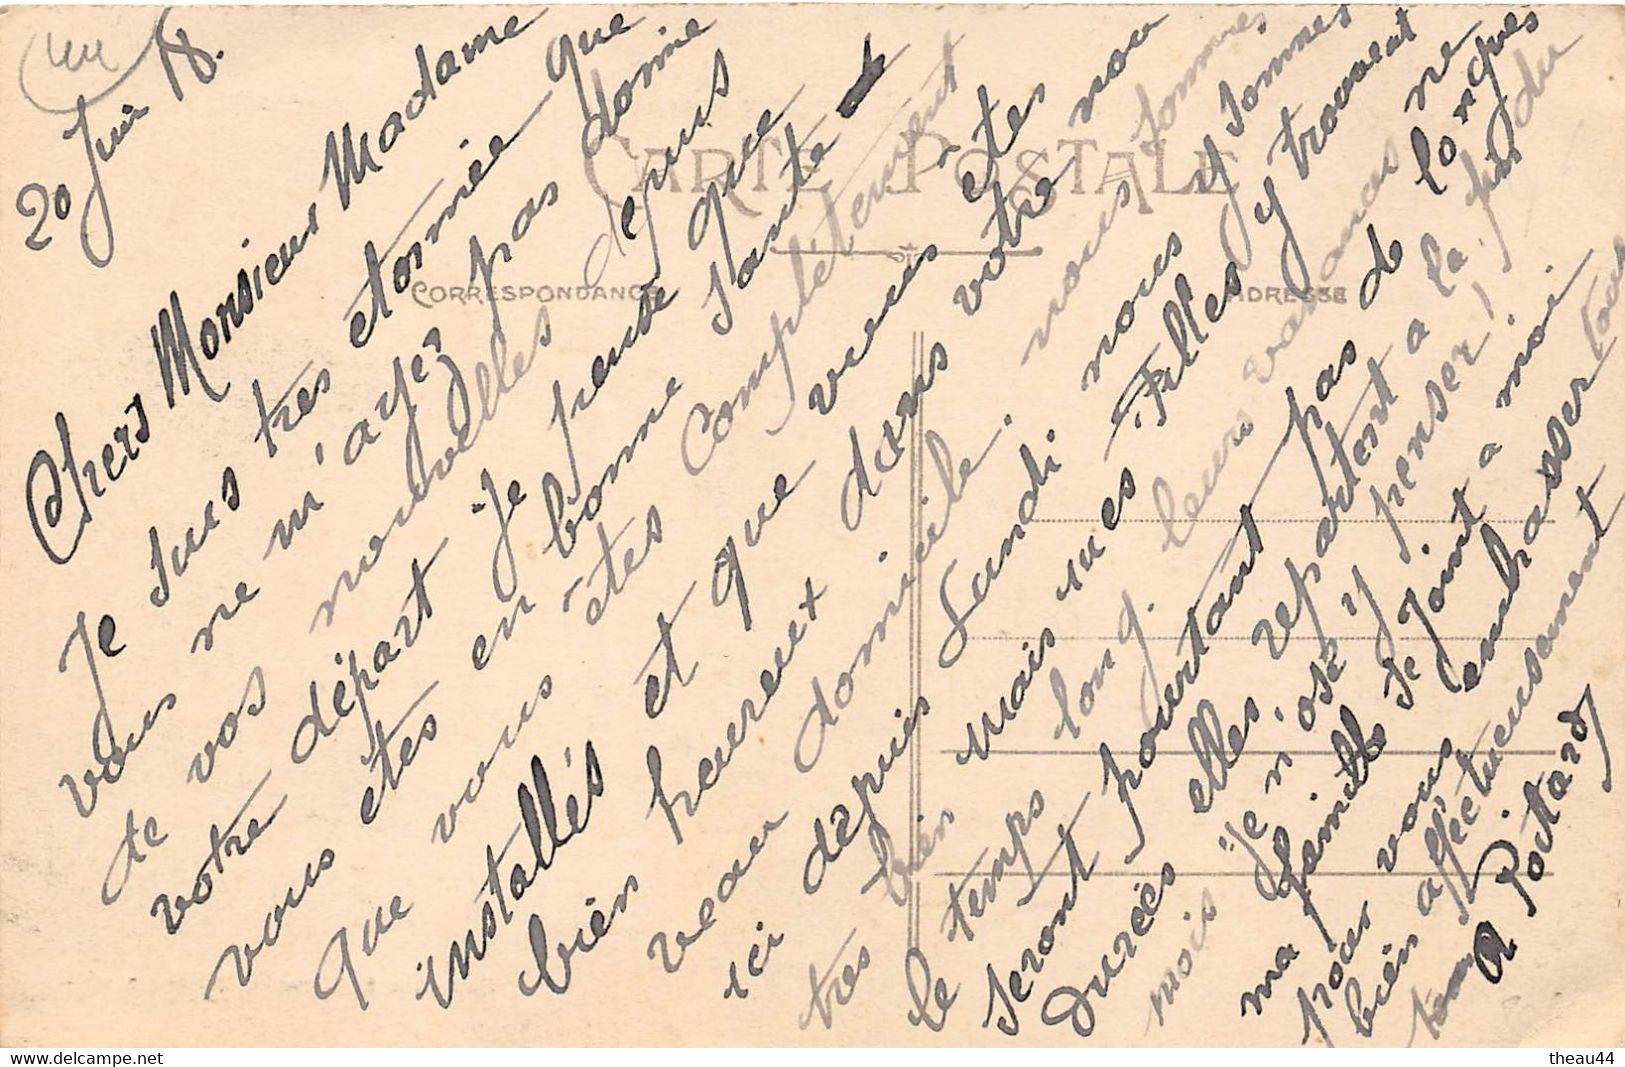 20 Juin 18.
Chers Monsieur Madame
Je suis tres étonnée que
vous ne m'ayez pas donné
de vos nouvelles depuis
votre départ. Je pense que
vous etes en bonne santé
que vous êtes complétement
installés et que vous êtes
bien heureux dans votre nou
veau domicile. nous sommes
ici depuis Lundi nous y sommes
très bien mais mes Filles y trouvent
le temps long. leurs vacances ne
seront pourtant pas de longues
Durées elles repartent a la fin du
mois je n'ose y penser!
ma famille se joint a moi
pour vous embrasser tous
bien affectueusement
A Potard
CARTE POSTALE
CORRESPONDANCE
ADRESSE
theau44